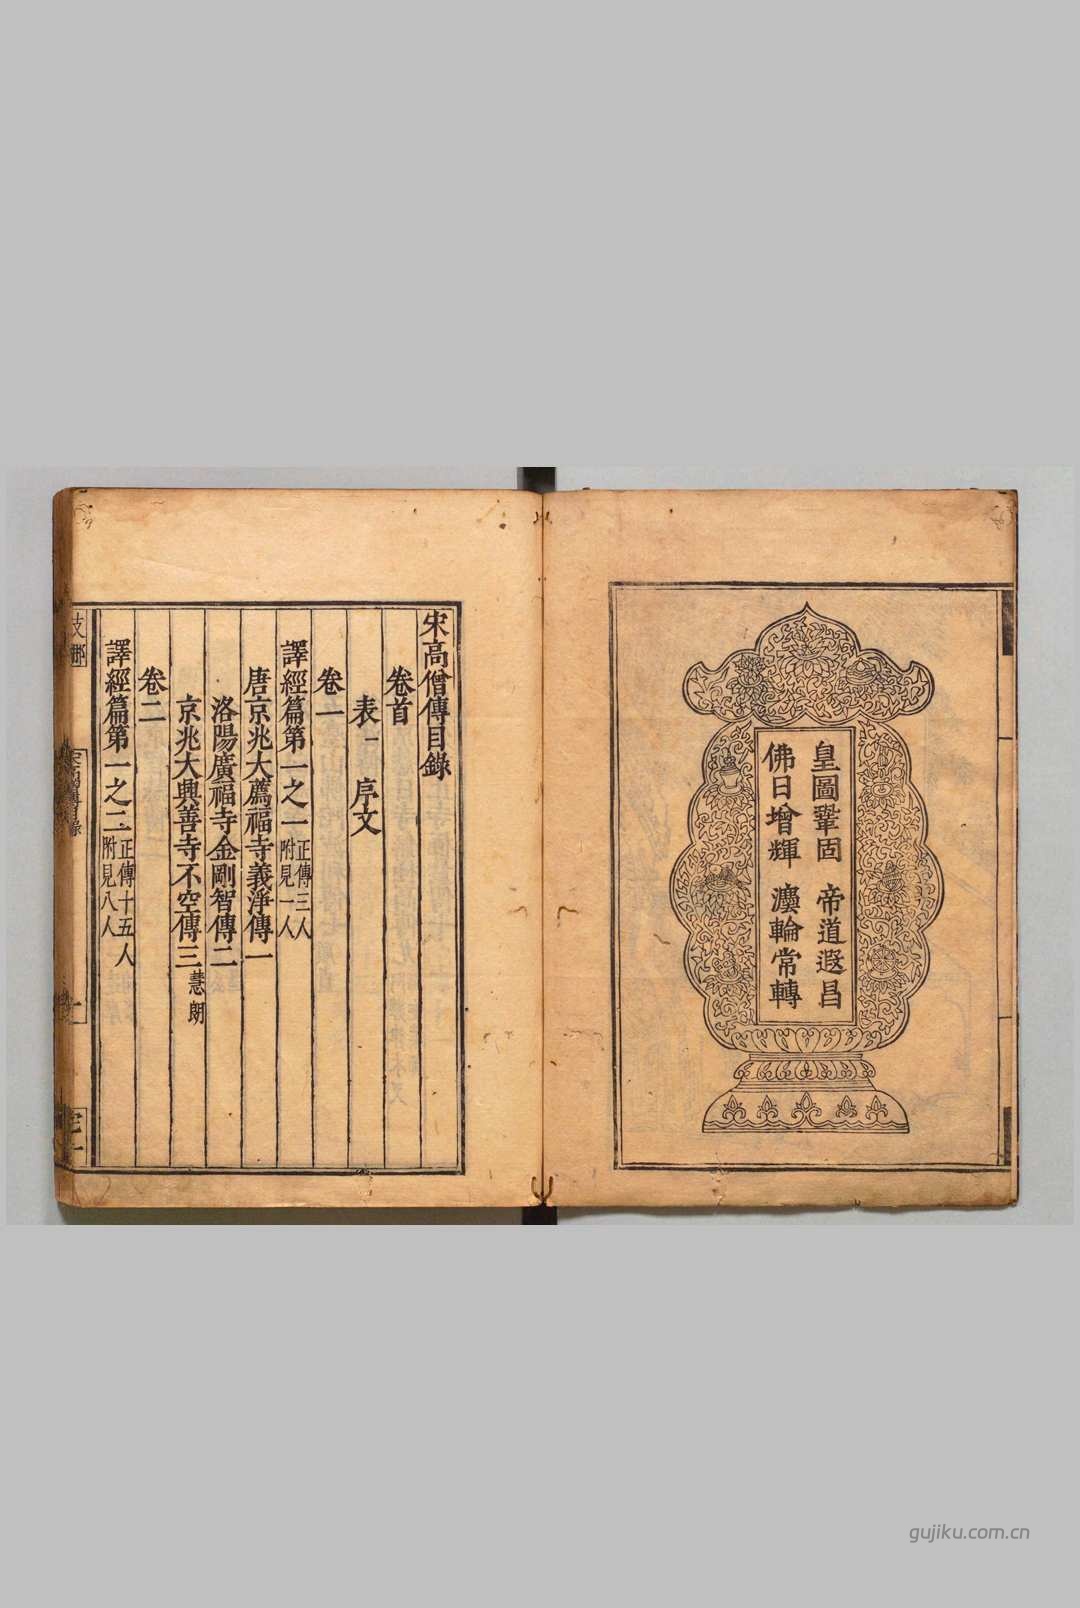 皇圖鞏固 帝道遐昌
佛日增輝 灋輪常轉
宋高僧傳目錄
卷首
表一 序文
卷一
譯經篇第一之一 正傳三人 附見一人
唐京兆大薦福寺義淨傳一
洛陽廣福寺金剛智傳二
京兆大興善寺不空傳三 慧朗
卷二
譯經篇第一之二 正傳十五人 附見八人
gujiku.com.cn